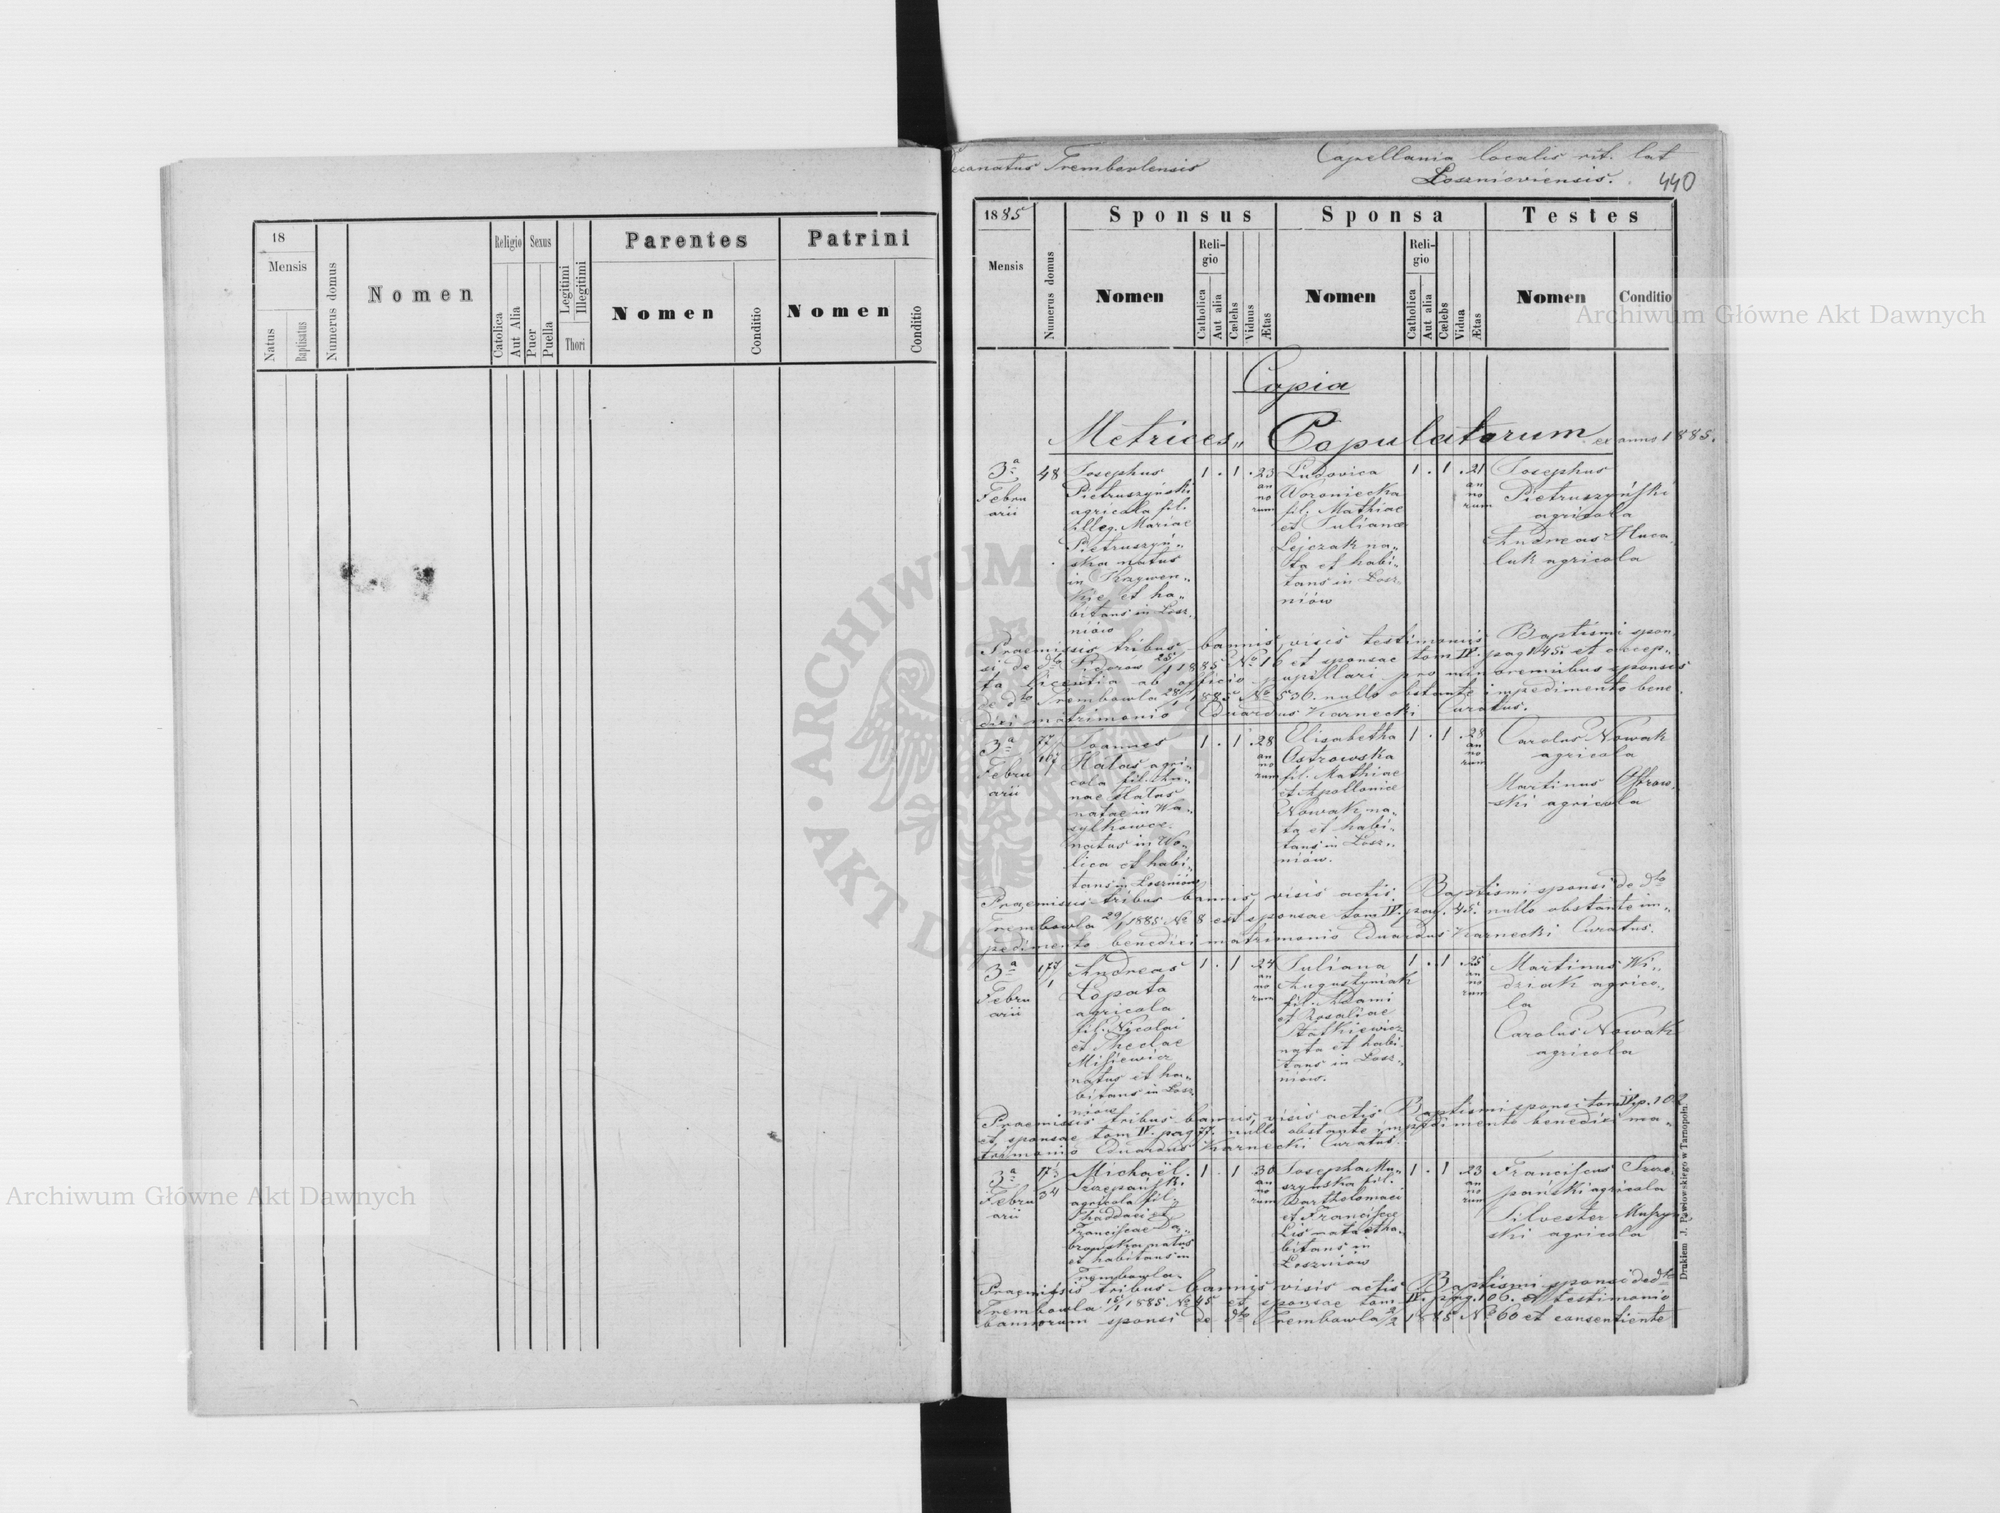 18
Mensis
Natus
Baptisatus
Numerus domus
Nomen
Religio
Catolica
Aut Alia
Sexus
Puer
Puella
Legitimi
Illegitimi
Thori
Parentes
Nomen
Conditio
Patrini
Nomen
Conditio
ecanatus Trembovlensis
Capellania localis rit. lat
Loszniowiensis.
440
1885
Mensis
Numerus domus
Sponsus
Nomen
Reli-
gio
Catholica
Aut alia
Cælebs
Viduus
Ætas
Sponsa
Nomen
Reli-
gio
Catholica
Aut alia
Cælebs
Vidua
Ætas
Testes
Nomen
Conditio
Copia
Metrices „ Copulatorum ex anno 1885.
3a
Febru
arii
48
Josephus
Pietruszyński
agricola fil.
illeg. Mariae
Pietruszyń„
ska natus
in Krzywen„
kie et ha„
bitans in Łosz„
niów
1 . 1 . 23
an
no
rum
Ludovica
Woroniecka
fil. Mathiae
et Julianae
Lejczak na„
ta et habi„
tans in Łosz„
niów
1 . 1 . 21
an
no
rum
Josephus
Pietruszyński
agricola
Andreas Huca„
luk agricola
Praemissis tribus bannis, visis testimoniis Baptismi spon„
si de dto 25/1 1885 No 16 et sponsae tom IV. pag 45 et accep„
ta licentia ab officio pupillari pro minorennibus sponsis
de dto Trembowla 28/1 1885 No 536. nullo obstante impedimento bene„
dixi matrimonio Eduardus Karnecki Curatus.
3a
Febru
arii
77
107/1
Joannes
Hatas agri„
cola fil. An„
nae Hatas
natae in Wa„
sylkowce.
natus in Wo„
lica et habi„
tans in Łoszniów
1 . 1 . 28
an
no
rum
Elisabetha
Ostrowska
fil. Mathiae
et Apolloniae
Nowak na„
ta et habi„
tans in Łosz„
niów.
1 . 1 . 28
an
no
rum
Carolus Nowak
agricola
Martinus Ostrow„
ski agricola
Praemissis tribus bannis, visis actis Baptismi sponsi de dto
Trembowla 29/1 1885 No 8 et sponsae tom IV. pag. 45. nullo obstante im„
pedimento benedixi matrimonio Eduardus Karnecki Curatus.
3a
Febru
arii
177/1
Andreas
Łopata
agricola
fil. Nicolai
et Theclae
Misiewicz
natus et ha„
bitans in Łosz„
niów
1 . 1 . 24
an
no
rum
Juliana
Augustyniak
fil. Adami
et Rosaliae
Statkiewicz
nata et habi„
tans in Łosz„
niów.
1 . 1 . 25
an
no
rum
Martinus Wi„
dziak agrico„
la
Carolus Nowak
agricola
Praemissis tribus bannis, visis actis Baptismi sponsi tom IV. p. 102
et sponsae tom IV. pag 77. nullo obstante impedimento benedixi ma„
trimonio Eduardus Karnecki Curatus.
3a
Febru
arii
34
Michaël
Szczepański
agricola fil.
Thaddaei et
Franciscae Dą„
browska natus
et habitans in
Trembowla
1 . 1 . 30
an
no
rum
Josepha Mu„
szyńska fil.
Bartholomaei
et Franciscae
Lis nata et ha„
bitans in
Łoszniów
1 . 1 . 23
an
no
rum
Franciscus Szcze„
pański agricola
Silvester Muszyń„
ski agricola
Praemissis tribus bannis, visis actis Baptismi sponsi de dto
Trembowla 15/1 1885 No 45 et sponsae tom IV. pag. 106. et testimonio
bannorum sponsi de dto Trembowla 2/2 1885 No 60 et consentiente
Drukiem J. Pawłowskiego w Tarnopolu.
Archiwum Główne Akt Dawnych
Archiwum Główne Akt Dawnych